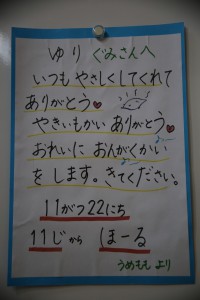 ゆり ぐみさんへ
いつも やさしくしてくれて
ありがとう♥
やきいもかい ありがとう♥
おれいに おんがくかい
を します。きてください。
11がつ22にち
11じから ほーる
うめもも より